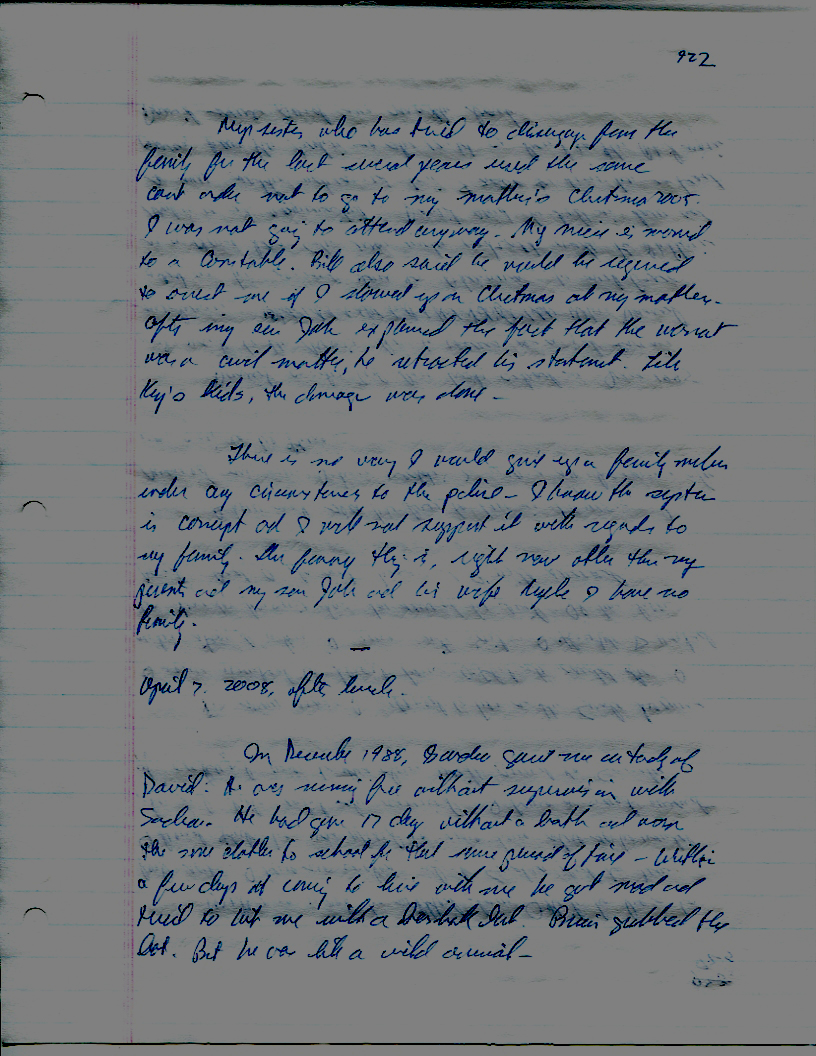 922
My sister who has tried to disengage from the
family for the last several years used the same
court order not to go to my mother's Christmas 2005.
I was not going to attend anyway. My niece is married
to a Constable. Bill also said he would be required
to arrest me if I showed up on Christmas at my mother.
After my son John explained the fact that the warrant
was a civil matter, he retracted his statement. Like
Kids, the damage was done -
There is no way I would give up a family member
under any circumstances to the police - I know the system
is corrupt and I will not support it with regards to
my family. The funny thing is, right now other than my
parents and my son John and his wife I have no
family.
April 7, 2008, after lunch.
In December 1988, gave me custody of
David. He was running free without supervision with
He had gone 17 days without a bath and worn
the same clothes to school for that same period of time - Within
a few days of coming to live with me he got mad and
tried to hit me with a baseball bat. Brian grabbed the
bat. But he was like a wild animal -